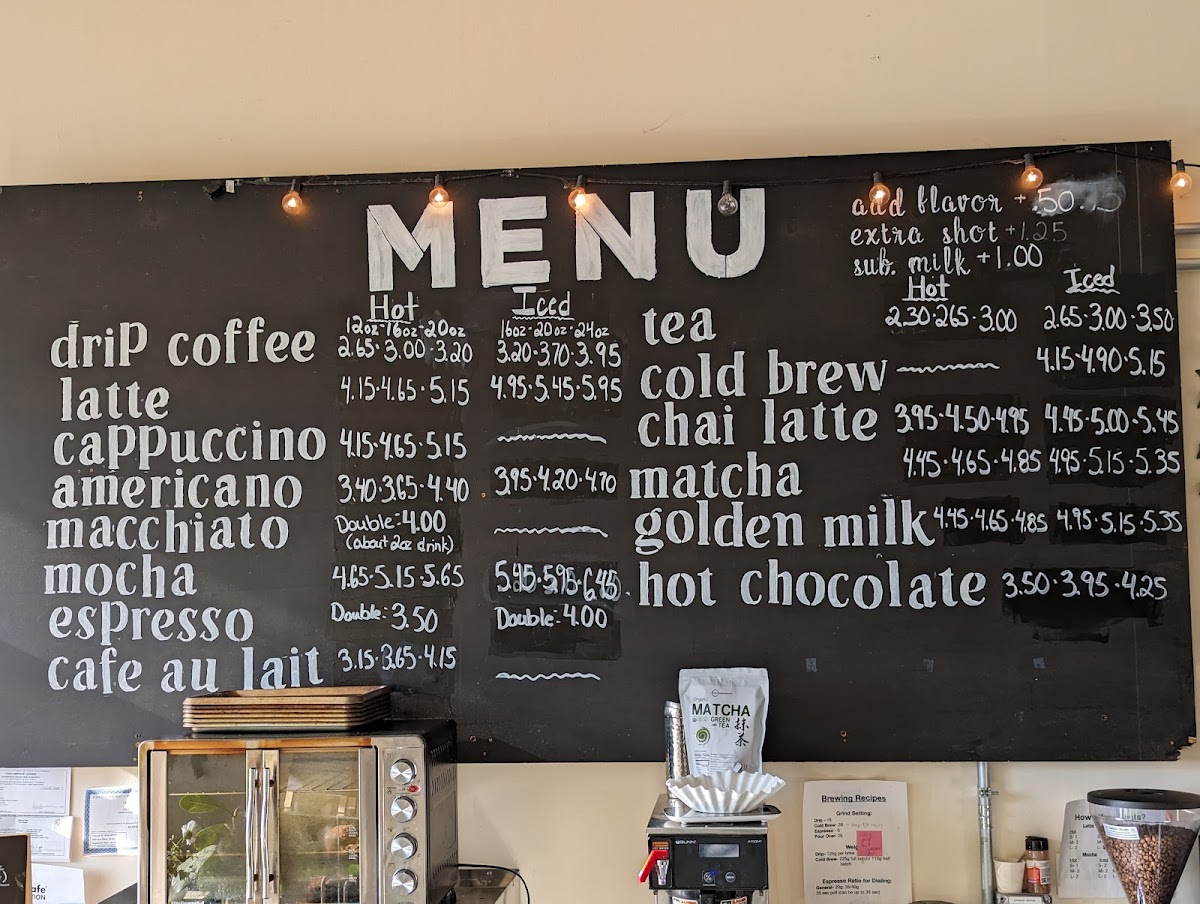 MENU
add flavor +.50
extra shot +1.25
sub. milk +1.00
Hot Iced
12oz-16oz-20oz 16oz-20oz-24oz
drip coffee 2.65·3.00·3.20 3.20·3.70·3.95
latte 4.15·4.65·5.15 4.95·5.45·5.95
cappuccino 4.15·4.65·5.15
americano 3.40·3.65·4.40 3.95·4.20·4.70
macchiato Double:4.00
(about 2oz drink)
mocha 4.65·5.15·5.65 5.45·5.95·6.45
espresso Double:3.50 Double:4.00
cafe au lait 3.15·3.65·4.15
Hot Iced
tea 2.30·2.65·3.00 2.65·3.00·3.50
cold brew 4.15·4.90·5.15
chai latte 3.95·4.50·4.95 4.45·5.00·5.45
matcha 4.45·4.65·4.85 4.95·5.15·5.35
golden milk 4.45·4.65·4.85 4.95·5.15·5.35
hot chocolate 3.50·3.95·4.25
Organic
MATCHA
GREEN
TEA
抹茶
BUNN
Brewing Recipes
Grind Setting:
Espresso Ratio for Dialing: